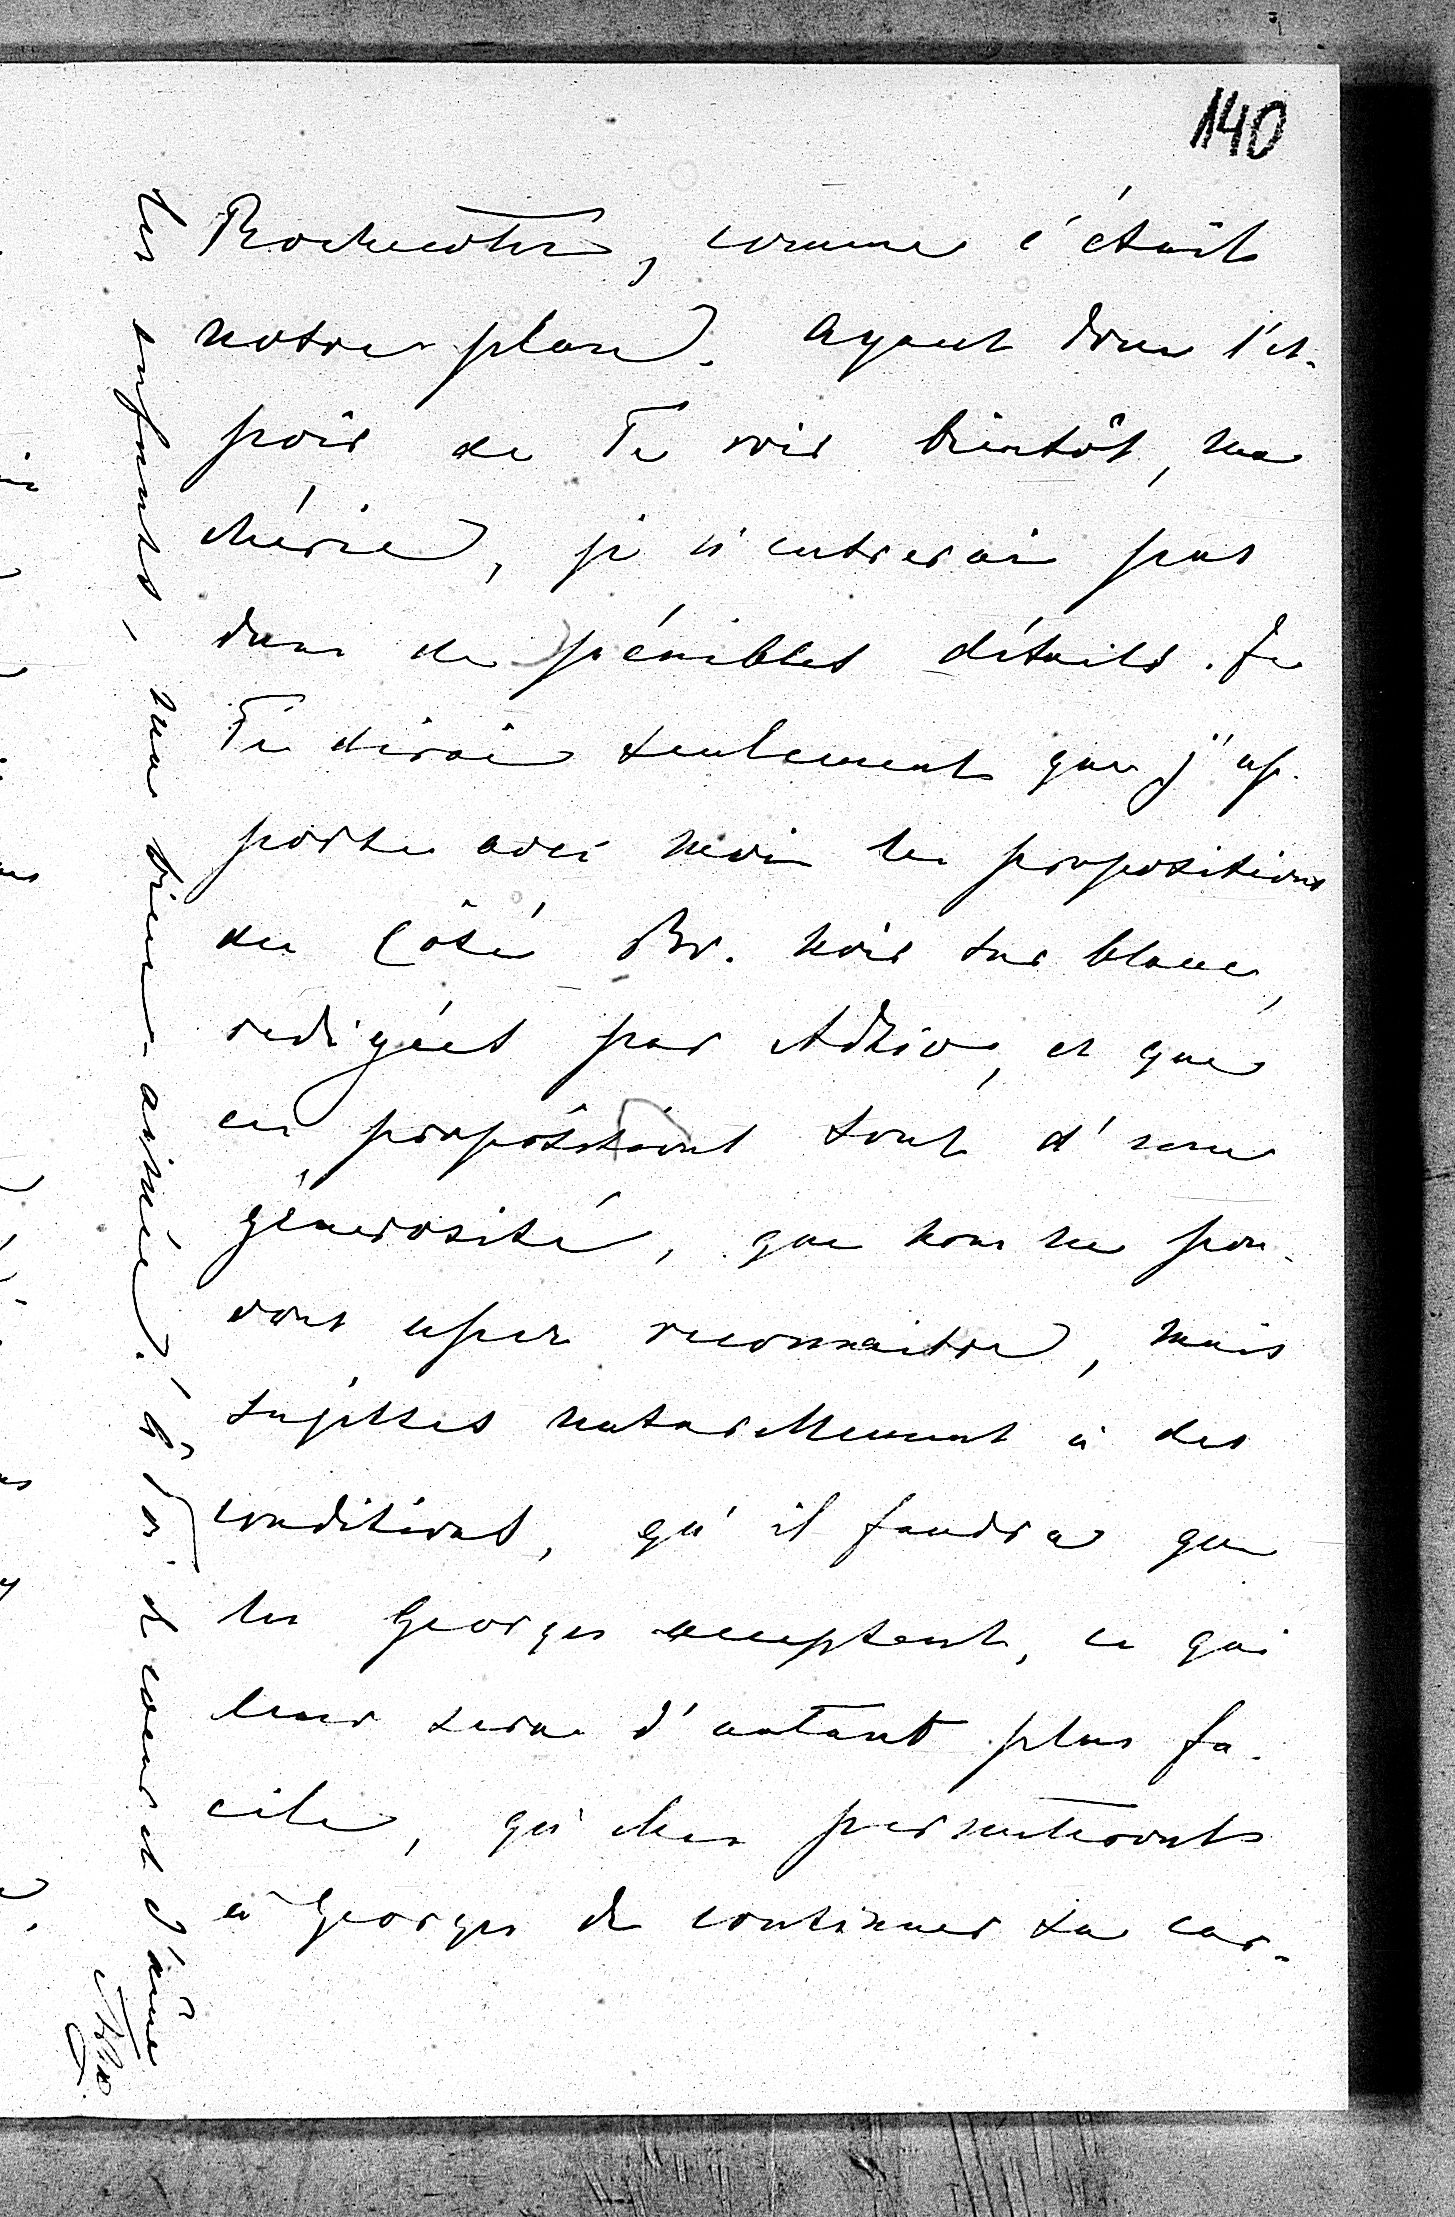 140
Rochecotte, comme c'était
notre plan. Ayant donc l'es-
poir de Te voir bientôt, ma
chérie, je n'entrerai pas
dans de pénibles détails. Je
Te dirai seulement que j'ap-
porte avec moi les propositions
du Côté Br. noir sur blanc,
redigées par Adzio, et que
ces propositions sont d'une
génerosité, que nous ne pou-
vons assez reconnaitre, mais
sujettes naturellement à des
conditions, qu'il faudra que
les Georges acceptent, ce qui
leur sera d'autant plus fa-
cile, qu'elles permetteront
à Georges de continuer sa car-
les enfants, ma bien-aimée. à Toi de coeur et d'âme